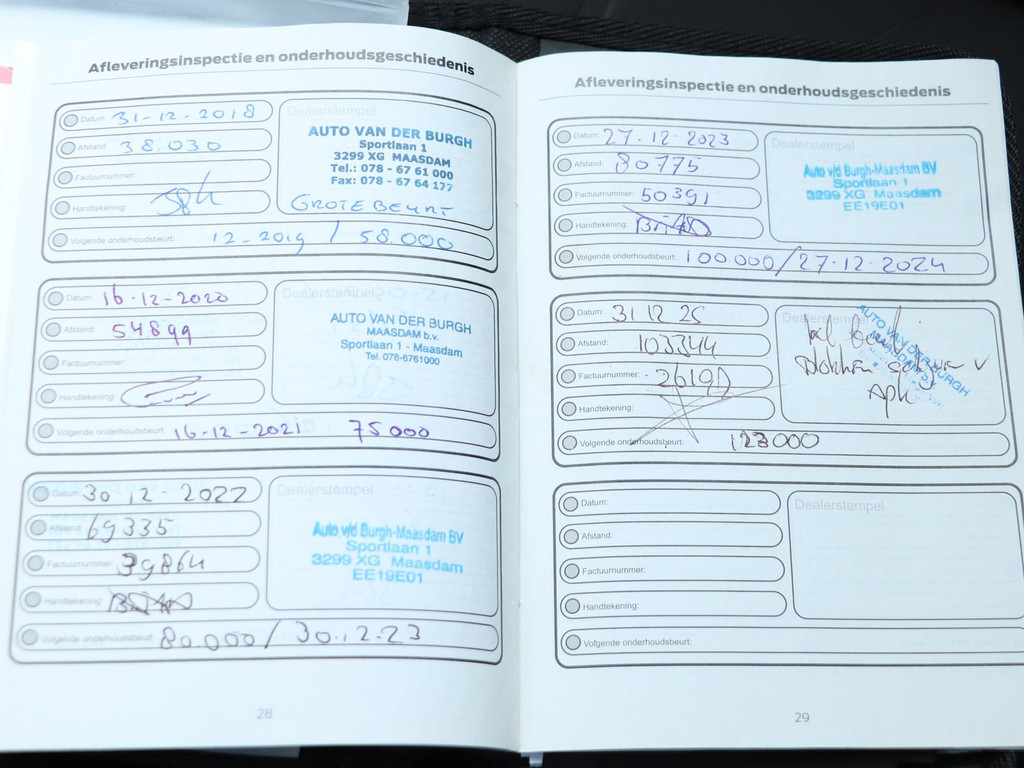 Afleveringsinspectie en onderhoudsgeschiedenis
Datum: 31-12-2018
Afstand: 38.030
Factuurnummer:
Handtekening:
Volgende onderhoudsbeurt: 12-2019 / 58.000
Dealerstempel
AUTO VAN DER BURGH
Sportlaan 1
3299 XG MAASDAM
Tel.: 078 - 67 61 000
Fax: 078 - 67 64 177
GROTE BEURT
Datum: 16-12-2020
Afstand: 54899
Factuurnummer:
Handtekening:
Volgende onderhoudsbeurt: 16-12-2021 75000
Dealerstempel
AUTO VAN DER BURGH
MAASDAM b.v.
Sportlaan 1 - Maasdam
Tel. 078-6761000
Datum: 30 12-2022
Afstand: 69335
Factuurnummer: 39864
Handtekening:
Volgende onderhoudsbeurt: 80.000/30.12.23
Dealerstempel
Auto v/d Burgh-Maasdam BV
Sportlaan 1
3299 XG Maasdam
EE19E01
28
Afleveringsinspectie en onderhoudsgeschiedenis
Datum: 27-12-2023
Afstand: 80775
Factuurnummer: 50391
Handtekening:
Volgende onderhoudsbeurt: 100.000/27-12-2024
Dealerstempel
Auto v/d Burgh-Maasdam BV
Sportlaan 1
3299 XG Maasdam
EE19E01
Datum: 31 12 25
Afstand: 103344
Factuurnummer:
Handtekening:
Volgende onderhoudsbeurt: 123000
AUTO VAN DER BURGH
MAASDAM b.v.
Datum:
Afstand:
Factuurnummer:
Handtekening:
Volgende onderhoudsbeurt:
Dealerstempel
29